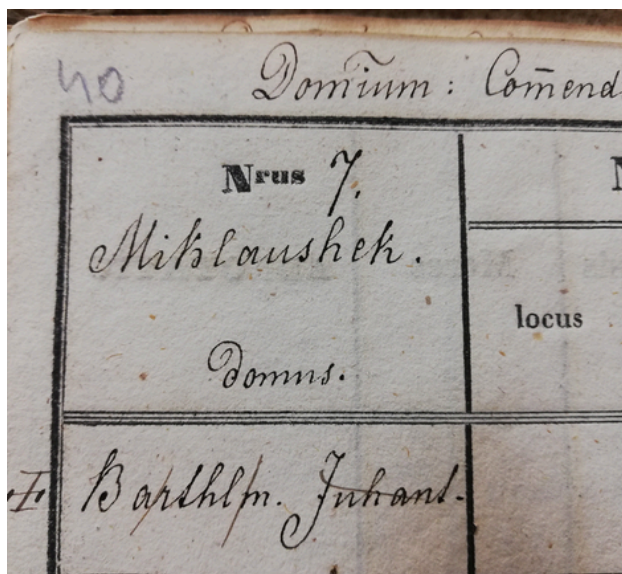 40
Dom̄ium: Com̄end
Nrus 7.
Miklaushek.
locus
domus.
Barthlm. Juhant.